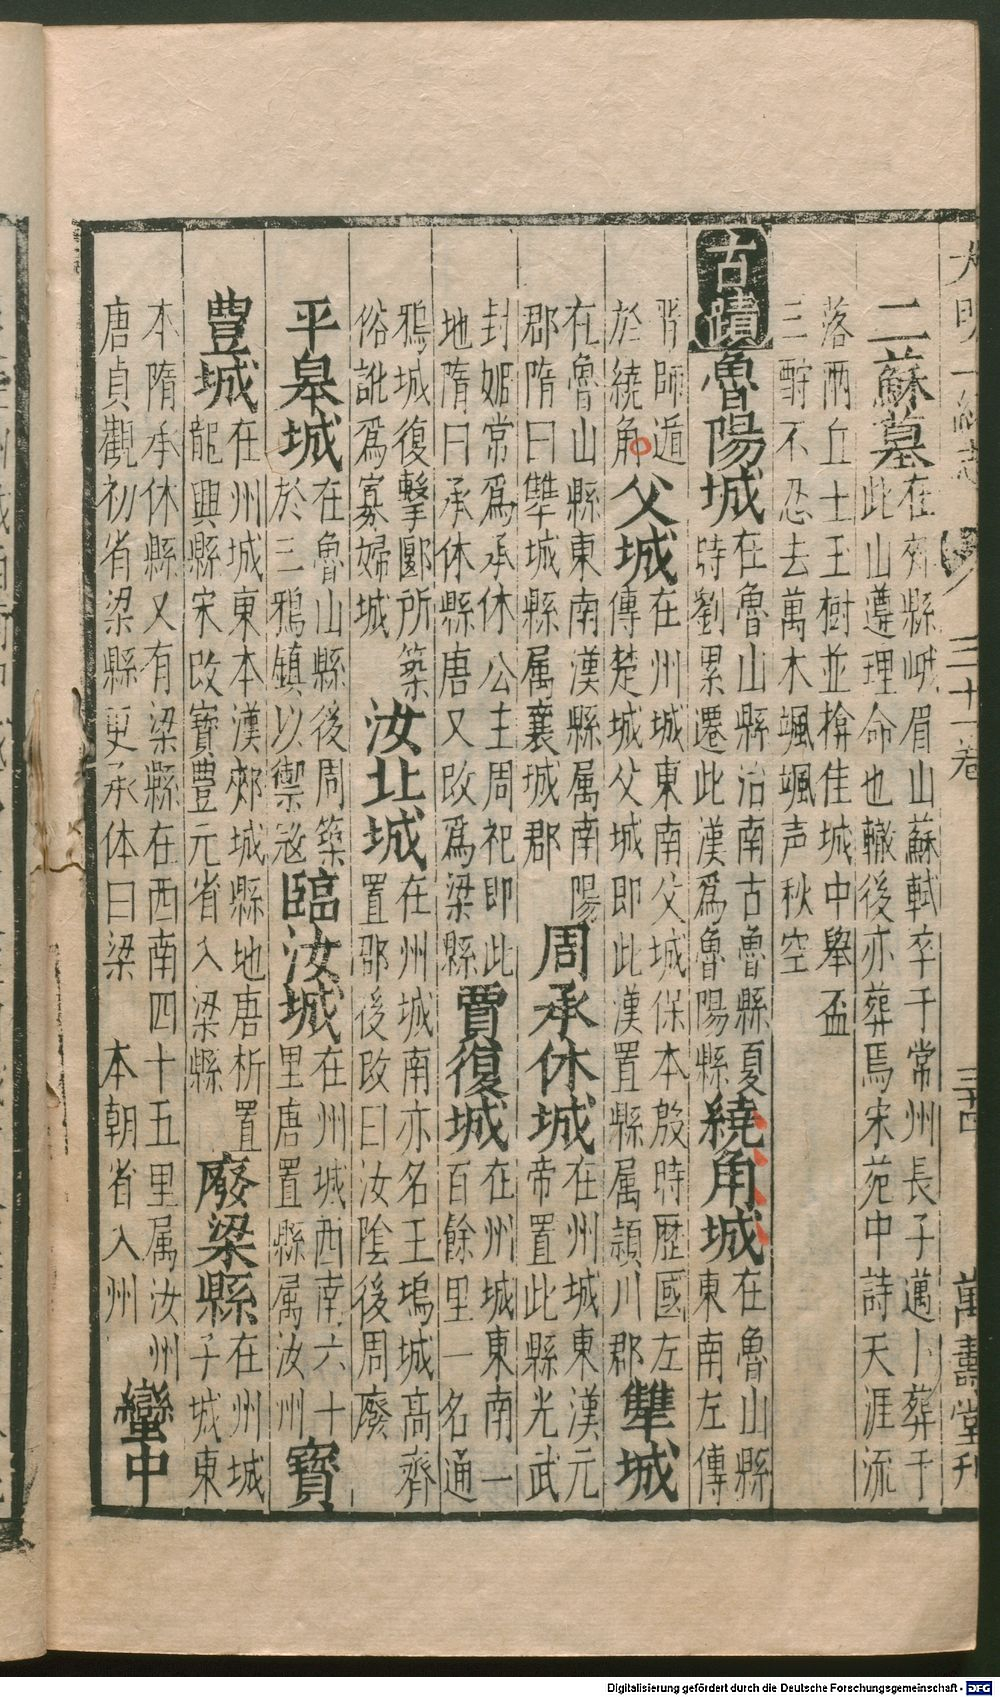 大明一統志 三十一卷 三十四 萬壽堂刊
二蘇墓在郟縣峨眉山蘇軾卒于常州長子邁卜葬于
此山遵理命也轍後亦葬焉宋苑中詩天涯流
落兩丘土玉樹並揜佳城中舉盃
三酹不忍去萬木颯颯声秋空
古蹟
魯陽城在魯山縣治南古魯縣夏
時劉累遷此漢爲魯陽縣
繞角城在魯山縣
東南左傳
師遁
於繞角
父城在州城東南父城保本殷時歷國左
傳楚城父城即此漢置縣属頴川郡
犨城
在魯山縣東南漢縣属南陽
郡隋曰犨城縣属襄城郡
周承休城在州城東漢元
帝置此縣光武
封姬常爲承休公主周祀即此
地隋曰承休縣唐又改爲梁縣
賈復城在州城東南一
百餘里一名通
鴉城復擊郾所築
俗訛爲寡婦城
汝北城在州城南亦名王塢城髙齊
置郡後改曰汝陰後周廢
平皋城在魯山縣後周築
於三鴉鎮以禦寇
臨汝城在州城西南六十
里唐置縣属汝州
寶
豐城在州城東本漢郟城縣地唐析置
龍興縣宋改寶豊元省入梁縣
廢梁縣在州城
子城東
本隋承休縣又有梁縣在西南四十五里属汝州
唐貞觀初省梁縣更承休曰梁 本朝省入州
蠻中
Digitalisierung gefördert durch die Deutsche Forschungsgemeinschaft - DFG